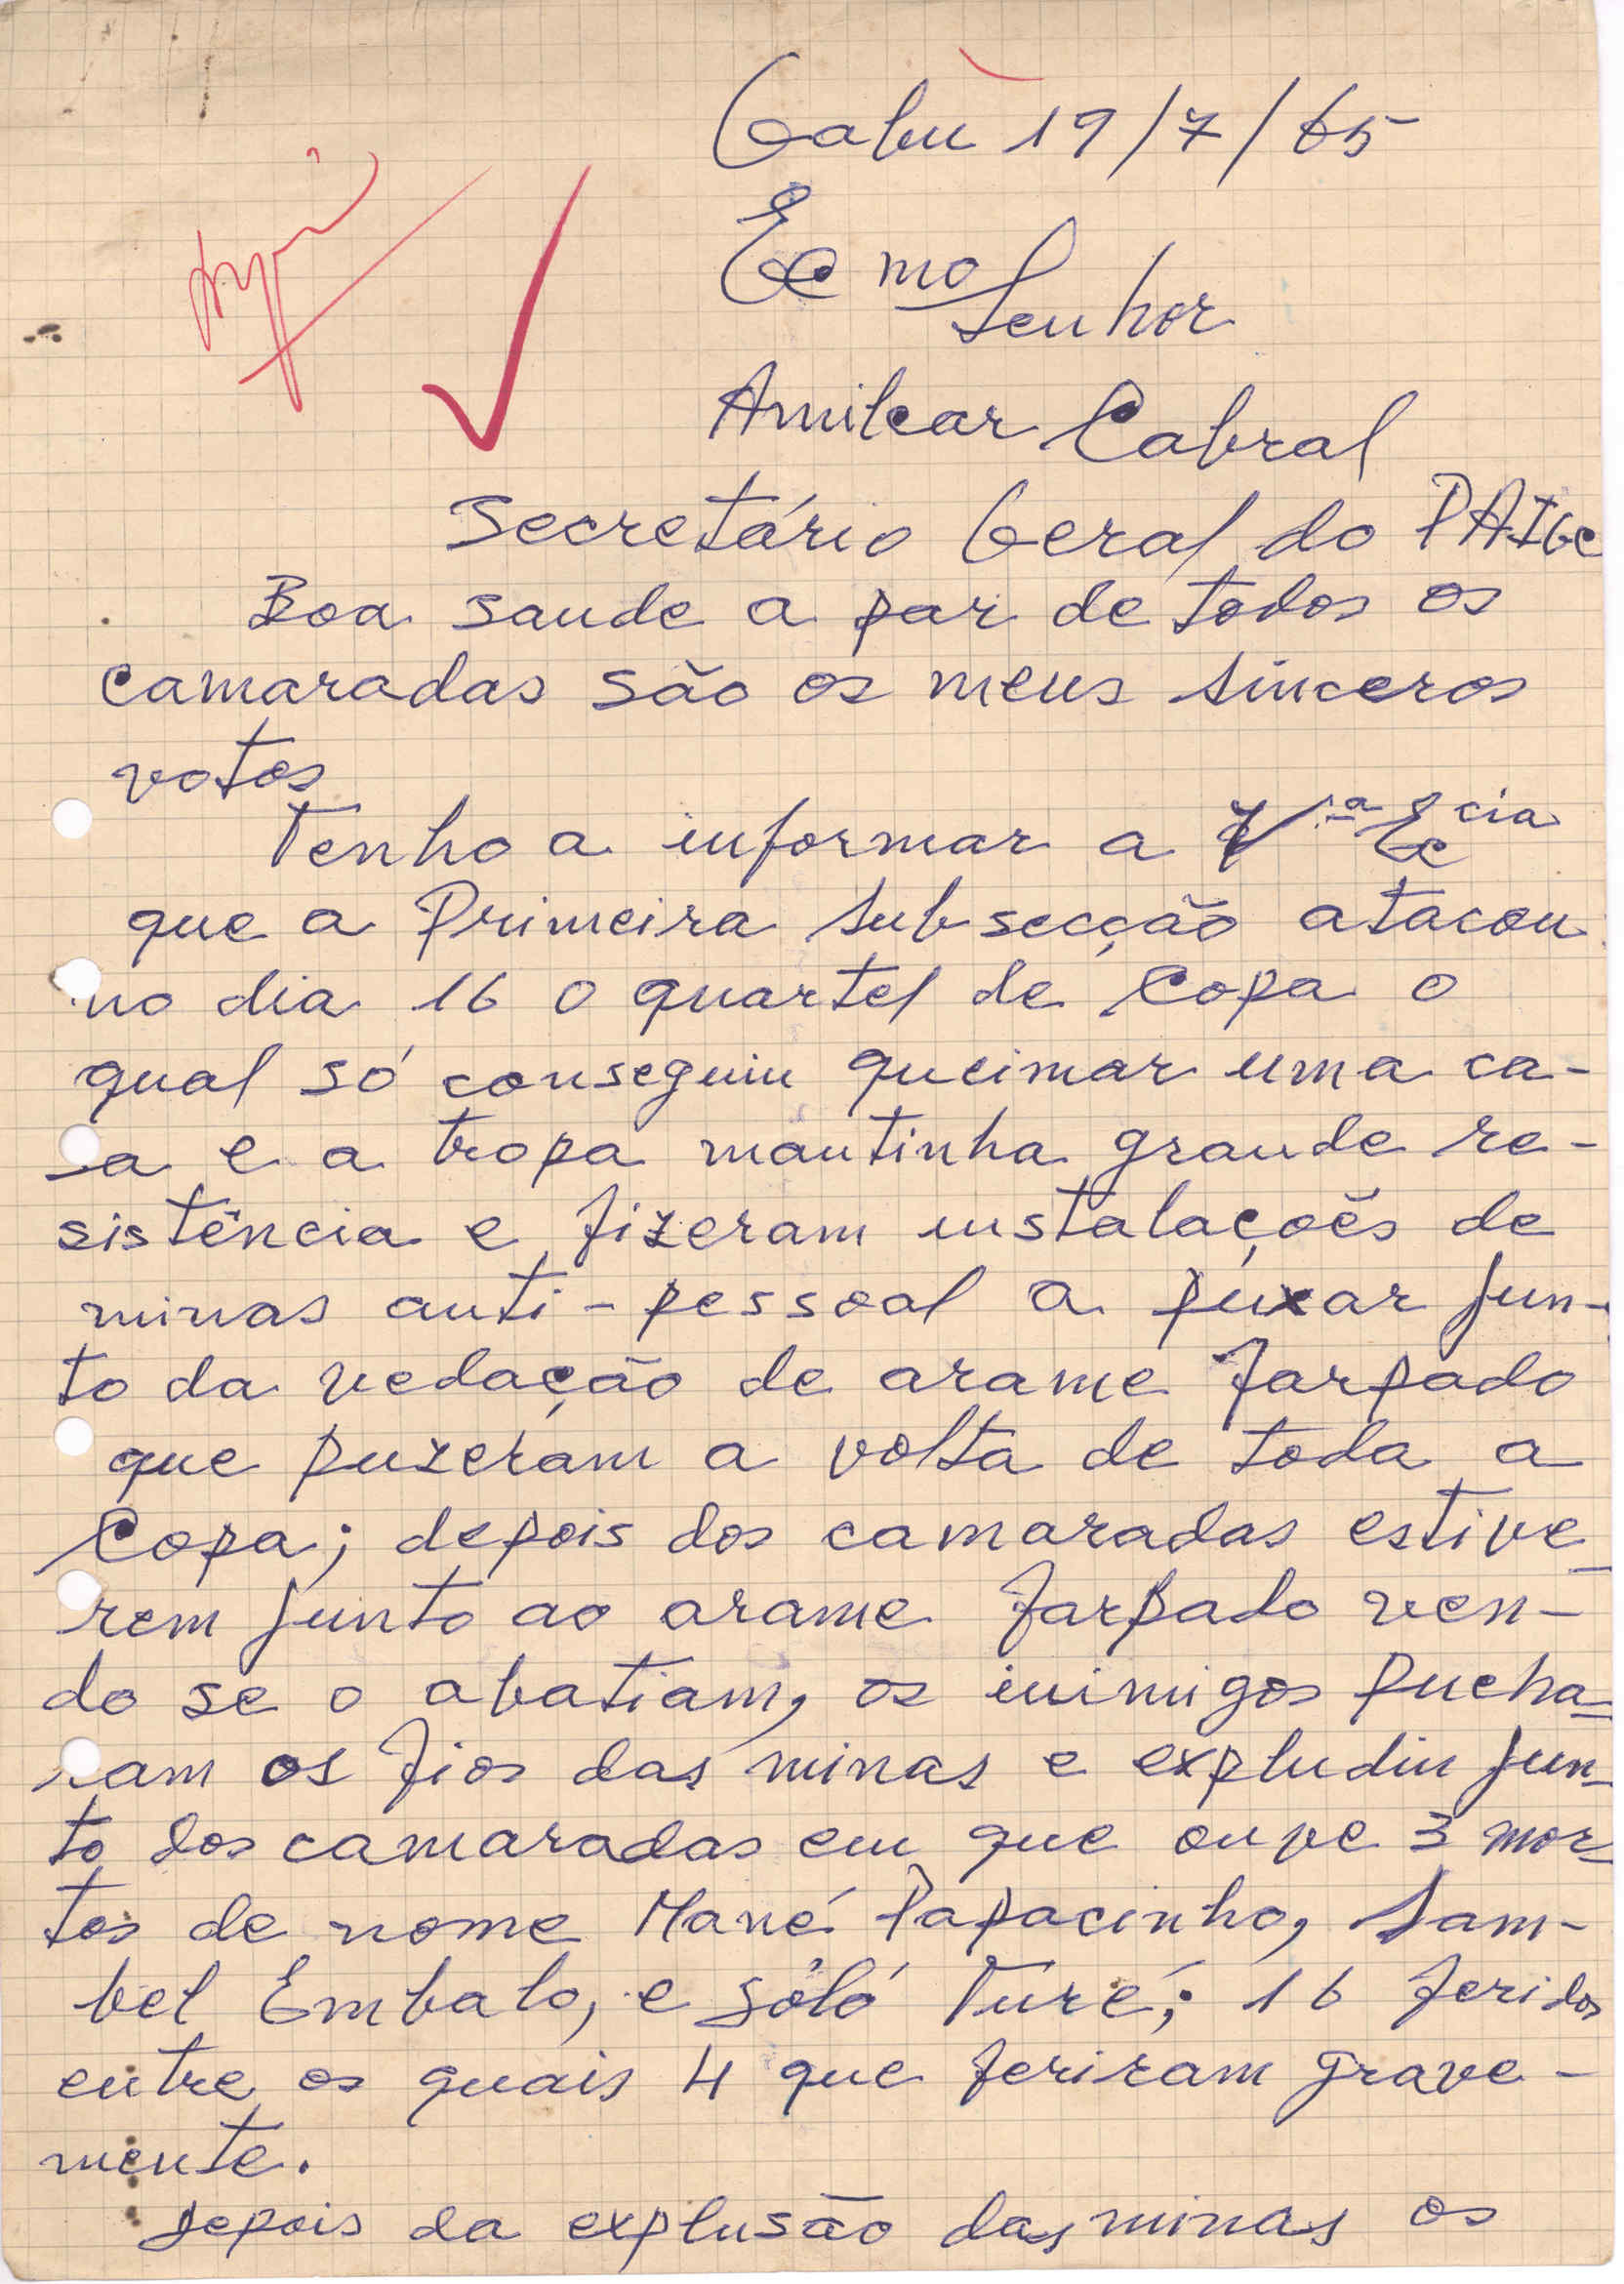 Gabu 19/7/65
Ec mo
Senhor
Amilcar Cabral
Secretário Geral do PAIGC
Boa saude a par de todos os
camaradas são os meus sinceros
votos
Tenho a informar a Vª Ec cia
que a Primeira subsecção atacou
no dia 16 o quartel de Copa o
qual só conseguiu queimar uma ca-
sa e a tropa mantinha grande re-
sistência e fizeram instalações de
minas anti-pessoal a puxar jun-
to da vedação de arame farpado
que puzeram a volta de toda a
Copa; depois dos camaradas estive
rem junto ao arame farpado ven-
do se o abatiam, os inimigos pucha-
ram os fios das minas e expludiu jun-
to dos camaradas em que ouve 3 mor-
tos de nome Mané Papacinho, Sam-
bel Embalo, e Sóló Turé; 16 feridos
entre os quais 4 que feriram grave-
mente.
Depois da explusão das minas os